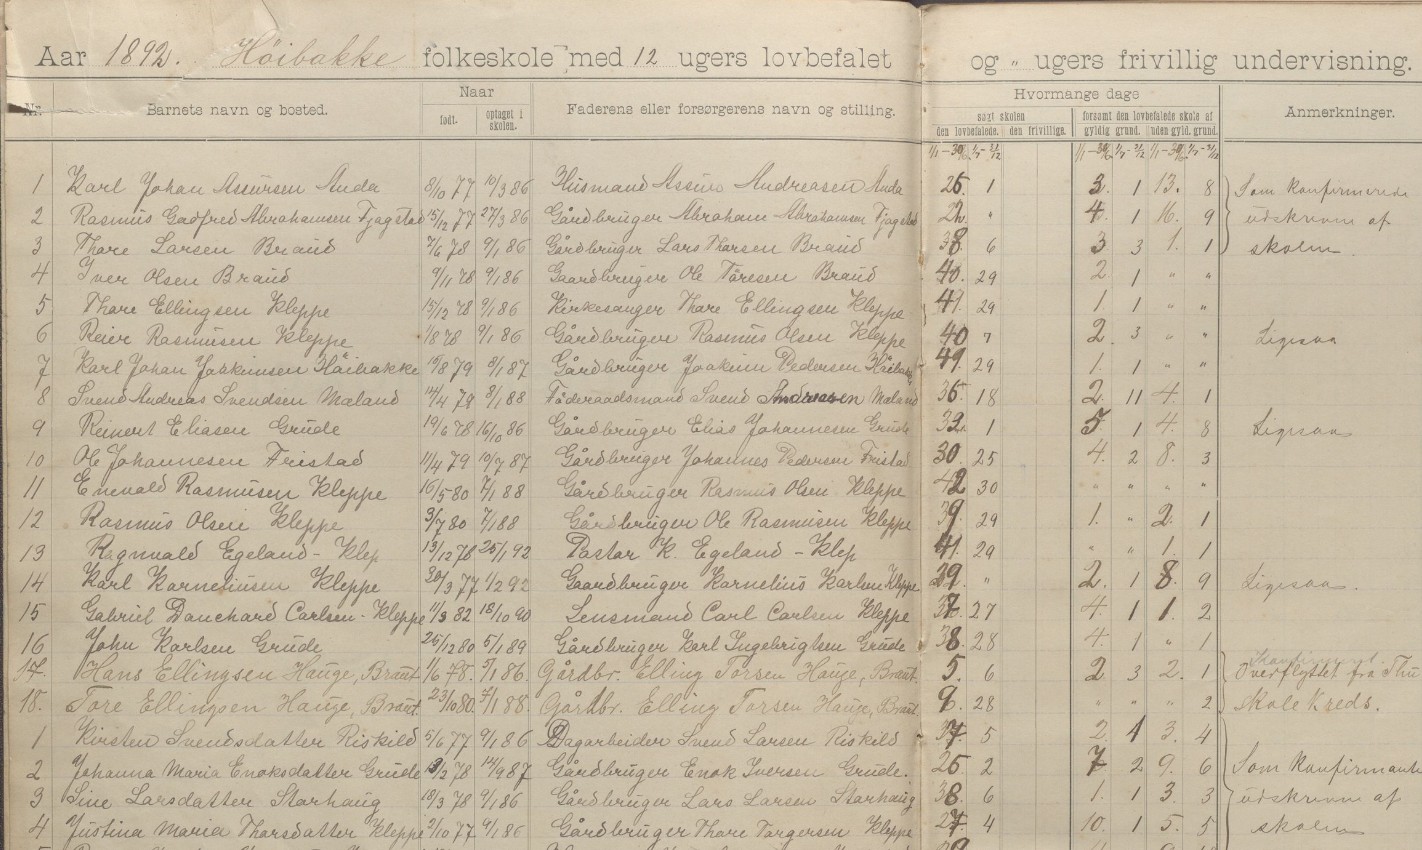 Aar 1892. Høibakke folkeskole med 12 ugers lovbefalet og " ugers frivillig undervisning.
Nr. Barnets navn og bosted. Naar Faderens eller forsørgerens navn og stilling. Hvormange dage Anmerkninger.
født. optaget i skolen. søgt skolen forsømt den lovbefalede skole af
den lovbefalede. den frivillige. gyldig grund. uden gyld. grund.
1/1-30/6 1/7-31/12 1/1-30/6 1/7-31/12 1/1-30/6 1/7-31/12
1 Karl Johan Assursen Anda 8/10 77 10/3 86 Husmand Assur Andreasen Anda 26 1 3. 1 13. 8 Som konfirmerede
2 Rasmus Gadfred Abrahamsen Fjagstad 15/12 77 27/3 86 Gårdbruger Abraham Abrahamsen Fjagstad 22. " 4. 1 16. 9 udskreven af
3 Thore Larsen Braud 7/6 78 9/1 86 Gårdbruger Lars Tharsen Braud 38 6 3 3 1. 1 skolen.
4 Iver Olsen Braud 9/11 78 9/1 86 Gaardbruger Ole Tøresen Braud 40. 29 2 1 " "
5 Thore Ellingsen Kleppe 15/12 78 9/1 86 Kirkesanger Thore Ellingsen Kleppe 41. 29 1 1 " "
6 Reier Rasmusen Kleppe 1/8 78 9/1 86 Gårdbruger Rasmus Olsen Kleppe 40 7 2. 3 " " Ligesaa
7 Karl Johan Joakimsen Håibakke 10/8 79 8/1 87 Gårdbruger Joakim Pedersen Håibakke 41. 29 1. 1 " "
8 Svend Andreas Svendsen Mæland 14/4 79 8/1 88 Føderaadsmand Svend Andreasen Mæland 36. 18 2 11 4. 1
9 Reinert Eliasen Grude 19/6 78 16/10 86 Gårdbruger Elias Johannesen Grude 32. 1 5 1 4. 8 Ligesaa
10 Ole Johannesen Fristad 11/4 79 10/7 87 Gårdbruger Johannes Pedersen Fristad 30. 25 4. 2 8. 3
11 Enevald Rasmusen Kleppe 16/5 80 7/1 88 Gårdbruger Rasmus Olsen Kleppe 42 30 " " " "
12 Rasmus Olsen Kleppe 3/7 80 7/1 88 Gårdbruger Ole Rasmusen Kleppe 39. 29 1. " 2. 1
13 Ragnvald Egeland - Klep 13/12 78 25/1 92 Pastor K. Egeland - Klep 41. 29 " " 1. 1
14 Karl Karneliusen Kleppe 30/3 77 1/2 92 Gaardbruger Karnelius Karlsen Kleppe 29. " 2. 1 8. 9 Ligesaa.
15 Gabriel Danchard Carlsen - Kleppe 11/3 82 18/10 90 Lensmand Carl Carlsen Kleppe 37. 27 4. 1 1. 2
16 John Karlsen Grude 25/12 80 5/1 89 Gårdbruger Karl Ingebrigtsen Grude 38 28 4. 1 " 1
17. Hans Ellingsen Hauge, Braut 1/6 78. 5/1 86. Gårdbr. Elling Torsen Hauge, Braut. 5. 6 2 3 2. 1 Overflyttet fra Thu
18. Tore Ellingsen Hauge, Braut. 23/10 80. 7/1 88. Gårdbr. Elling Torsen Hauge, Braut 9. 28 " " " 2 skolekreds.
1 Kirsten Svendsdatter Riskild 5/6 77 9/1 86 Dagarbeider Svend Larsen Riskild 37. 5 2. 1 3. 4
2 Johanna Maria Enoksdatter Grude 9/2 78 14/9 87 Gårdbruger Enok Iversen Grude. 26 2 7 2 9. 6 Som konfirmante
3 Sine Larsdatter Starhaug 18/3 78 9/1 86 Gårdbruger Lars Larsen Starhaug 38. 6 1. 1 3. 3 udskreven af
4 Justina Maria Tharsdatter Kleppe 2/10 77 9/1 86 Gårdbruger Thore Torgersen Kleppe 27. 4 10. 1 5. 5 skolen